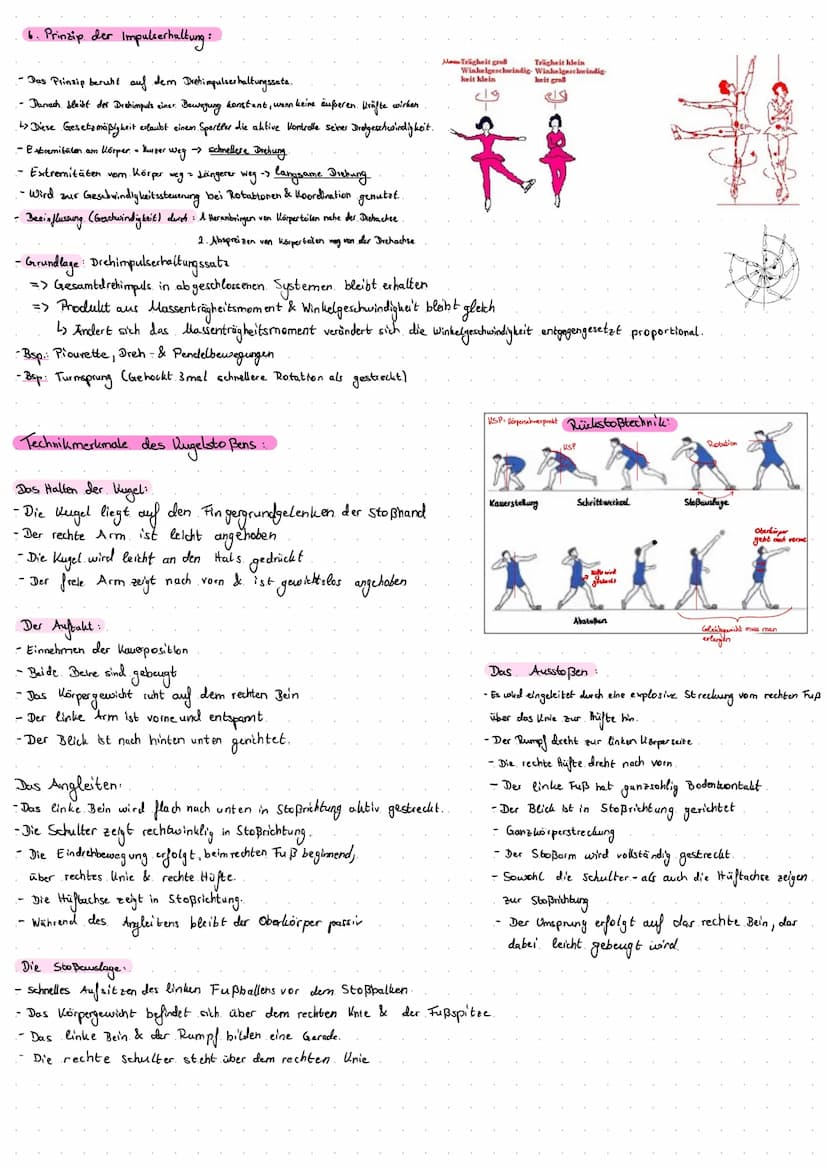 6. Prinzip der Impulserhaltung:
- Das Prinzip beruht auf dem Drehimpulserhaltungssatz.
- Danach bleibt der Drehimpuls einer Bewegung konstant, wenn keine äußeren Kräfte wirken.
↳ Diese Gesetzmäßigkeit erlaubt einem Sportler die aktive Kontrolle seiner Drehgeschwindigkeit.
- Extremitäten am Körper = kurzer Weg → schnellere Drehung
- Extremitäten vom Körper weg = Längerer Weg → langsame Drehung
- Wird zur Geschwindigkeitssteuerung bei Rotationen & Koordination genutzt.
- Beeinflussung (Geschwindigkeit) durch: 1. Heranbringen von Körperteilen nahe der Drehachse
2. Abspreizen von Körperteilen weg von der Drehachse
- Grundlage: Drehimpulserhaltungssatz
=> Gesamtdrehimpuls in abgeschlossenen Systemen bleibt erhalten
=> Produkt aus Massenträgheitsmoment & Winkelgeschwindigkeit bleibt gleich
↳ Ändert sich das Massenträgheitsmoment verändert sich die Winkelgeschwindigkeit entgegengesetzt proportional.
- Bsp.: Piourette, Dreh- & Pendelbewegungen
- Bsp: Turnsprung (Gehockt 3mal schnellere Rotation als gestreckt)
Trägheit groß
Winkelgeschwindig-
keit klein
Trägheit klein
Winkelgeschwindig-
keit groß
Technikmerkmale des Kugelstoßens:
Das Halten der Kugel:
- Die Kugel liegt auf den Fingergrundgelenken der Stoßhand
- Der rechte Arm ist leicht angehoben
- Die Kugel wird leicht an den Hals gedrückt
- Der freie Arm zeigt nach vorn & ist gewichtslos angehoben
Der Auftakt:
- Einnehmen der Kauerposition
- Beide Beine sind gebeugt
- Das Körpergewicht ruht auf dem rechten Bein
- Der linke Arm ist vorne und entspannt.
- Der Blick ist nach hinten unten gerichtet.
Das Angleiten:
- Das linke Bein wird flach nach unten in Stoßrichtung aktiv gestreckt.
- Die Schulter zeigt rechtwinklig in Stoßrichtung.
- Die Eindrehbewegung erfolgt, beim rechten Fuß beginnend,
über rechtes Knie & rechte Hüfte.
- Die Hüftachse zeigt in Stoßrichtung.
- Während des Angleitens bleibt der Oberkörper passiv
Die Stoßauslage:
- Schnelles Aufsitzen des linken Fußballens vor dem Stoßbalken.
- Das Körpergewicht befindet sich über dem rechten Knie & der Fußspitze.
- Das linke Bein & der Rumpf bilden eine Gerade.
- Die rechte Schulter steht über dem rechten Knie
KSP: Körperschwerpunkt
Rückstoßtechnik:
KSP
Rotation
Kauerstellung
Schrittwechsel
Stoßauslage
Oberkörper
geht nach vorne
Hüfte wird
gestreckt
Abstoßen
Gleichgewicht muss man
erlangen
Das Ausstoßen:
- Es wird eingeleitet durch eine explosive Streckung vom rechten Fuß
über das Knie zur Hüfte hin.
- Der Rumpf dreht zur linken Körperseite
- Die rechte Hüfte dreht nach vorn.
- Der linke Fuß hat ganzsohlig Bodenkontakt.
- Der Blick ist in Stoßrichtung gerichtet
- Ganzkörperstreckung
- Der Stoßarm wird vollständig gestreckt.
- Sowohl die Schulter- als auch die Hüftachse zeigen
zur Stoßrichtung
- Der Umsprung erfolgt auf das rechte Bein, das
dabei leicht gebeugt wird.